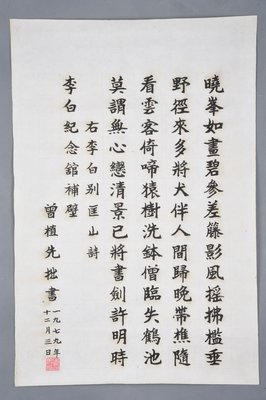 曉峯如畫碧參差籐影風搖拂檻垂
野徑來多將犬伴人間歸晚帶樵隨
看雲客倚啼猿樹洗鉢僧臨失鶴池
莫謂無心戀清景已將書劍許明時
右李白别匡山詩
李白紀念舘補壁
曾植先拙書
一九七九年
十二月三日